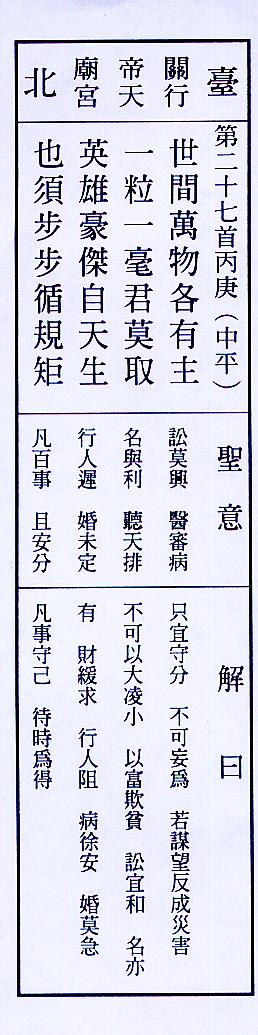 臺北
行天宮
關帝廟
第二十七首丙庚（中平）
世間萬物各有主
一粒一毫君莫取
英雄豪傑自天生
也須步步循規矩
聖意
訟莫興　醫審病
名與利　聽天排
行人遲　婚未定
凡百事　且安分
解曰
只宜守分　不可妄為　若謀望反成災害
不可以大凌小　以富欺貧　訟宜和　名亦
有　財緩求　行人阻　病徐安　婚莫急
凡事守己　待時為得